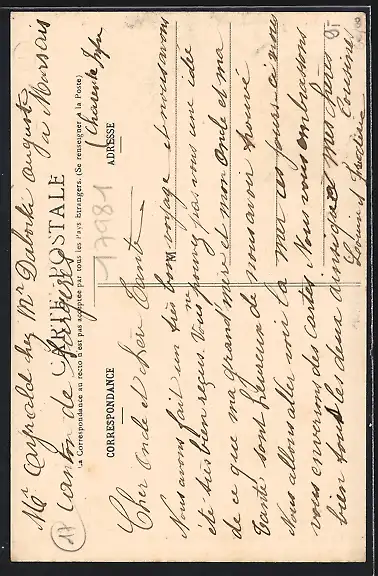 Mr Caspalde chez Mr Dalocki auguste
à Marsais
Canton de Surgères
(Charente Infre
CARTE POSTALE
La Correspondance au recto n'est pas acceptée par tous les Pays Étrangers. (Se renseigner à la Poste)
CORRESPONDANCE
ADRESSE
17981
17
M
Cher Oncle et chère Tante
Nous avons fait un très bon voyage et nous avons
été très bien reçus. Vous ne pouvez pas vous une idée
de ce que ma grand mère et mon Oncle et ma
Tante sont heureux de nous avoir trouvé
Nous allons aller voir la mer ces jours-ci nous
vous enverrons des cartes. Nous vous embrassons
bien tous les deux ainsi que mes frères
Cousine